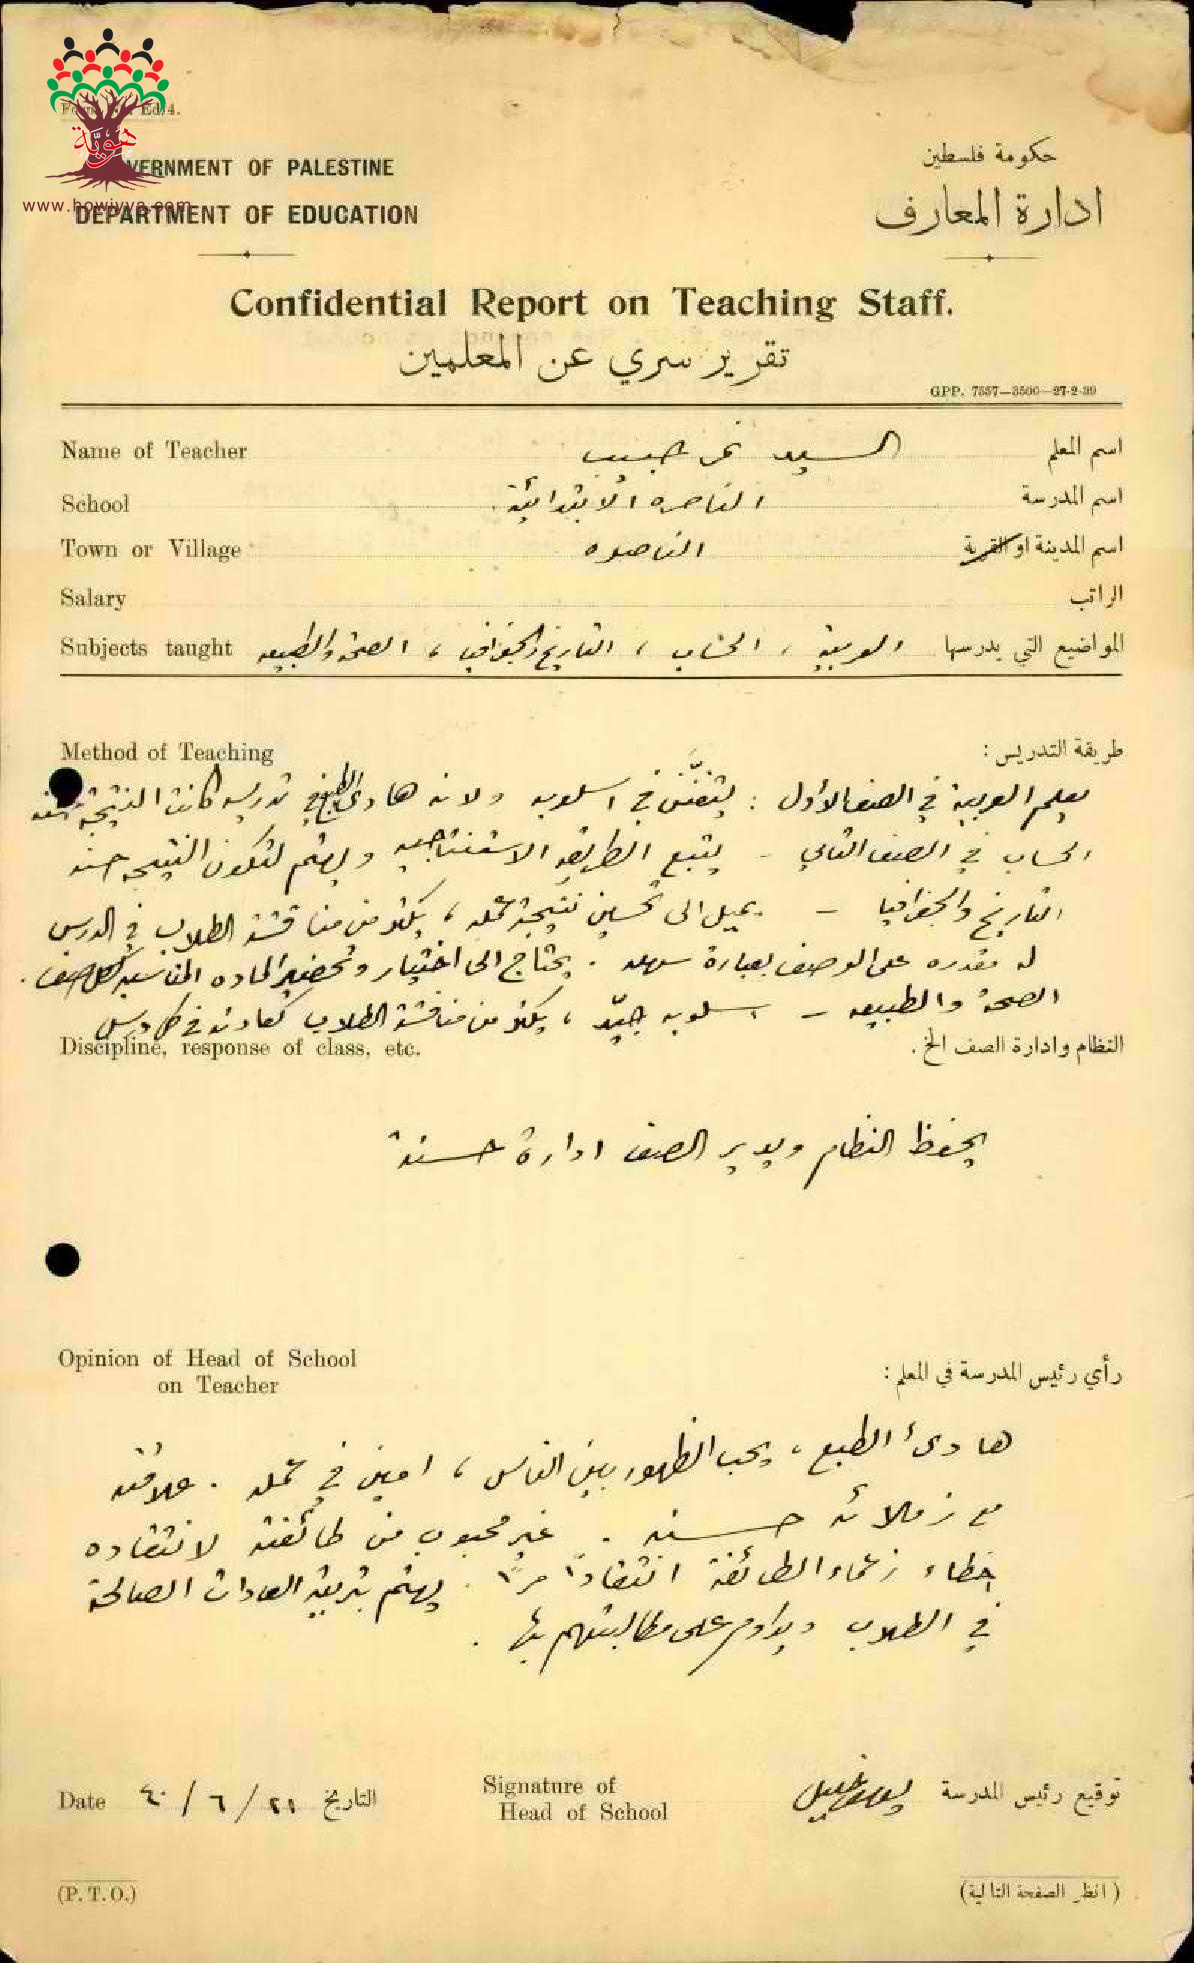 هوية
www.howiyya.com
Ed/4.
GOVERNMENT OF PALESTINE
DEPARTMENT OF EDUCATION
حكومة فلسطين
ادارة المعارف
Confidential Report on Teaching Staff.
تقرير سري عن المعلمين
GPP. 7557—3500—27-2-39
Name of Teacher السيد نمر حبيب اسم المعلم
School الناصره الابتدائية. اسم المدرسة
Town or Village الناصره اسم المدينة او القرية
Salary الراتب
Subjects taught العربية ، الحساب ، التاريخ والجغرافيا ، الصحة والطبيعه المواضيع التي يدرسها
Method of Teaching طريقة التدريس :
يعلم العربية في الصف الاول : يتفنّن في اسلوبه ولانه هادئ الطبع في تدريسه كانت النتيجة حسنه
الحساب في الصف الثاني - يتبع الطريقه الاستنتاجيه ويهتم لتكون النتيجه حسنه
التاريخ والجغرافيا - يميل الى تحسين نتيجة عمله ، يكثر من مناقشة الطلاب في الدرس
له مقدره على الوصف بعبارة سهله . يحتاج الى اختيار وتحضير الماده المناسبه لكل صف .
الصحة والطبيعه - اسلوبه جيّد ، يكثر من مناقشة الطلاب كعادته في كل درس
Discipline, response of class, etc. النظام وادارة الصف الخ .
يحفظ النظام ويدير الصف ادارة حسنة
Opinion of Head of School
on Teacher
رأي رئيس المدرسة في المعلم :
هادئ الطبع ، يحب الظهور بين الناس ، امين في عمله . علاقته
مع زملائه حسنه . غير محبوب من طائفته لانتقاده
اخطاء زعماء الطائفة انتقاداً مراً . يهتم بتربية العادات الصالحة
في الطلاب ويداوم على مطالبتهم بها .
Date ٢١ / ٦ / ٤٠ التاريخ
Signature of
Head of School
توقيع رئيس المدرسة
(P. T. O.)
( انظر الصفحة التالية )